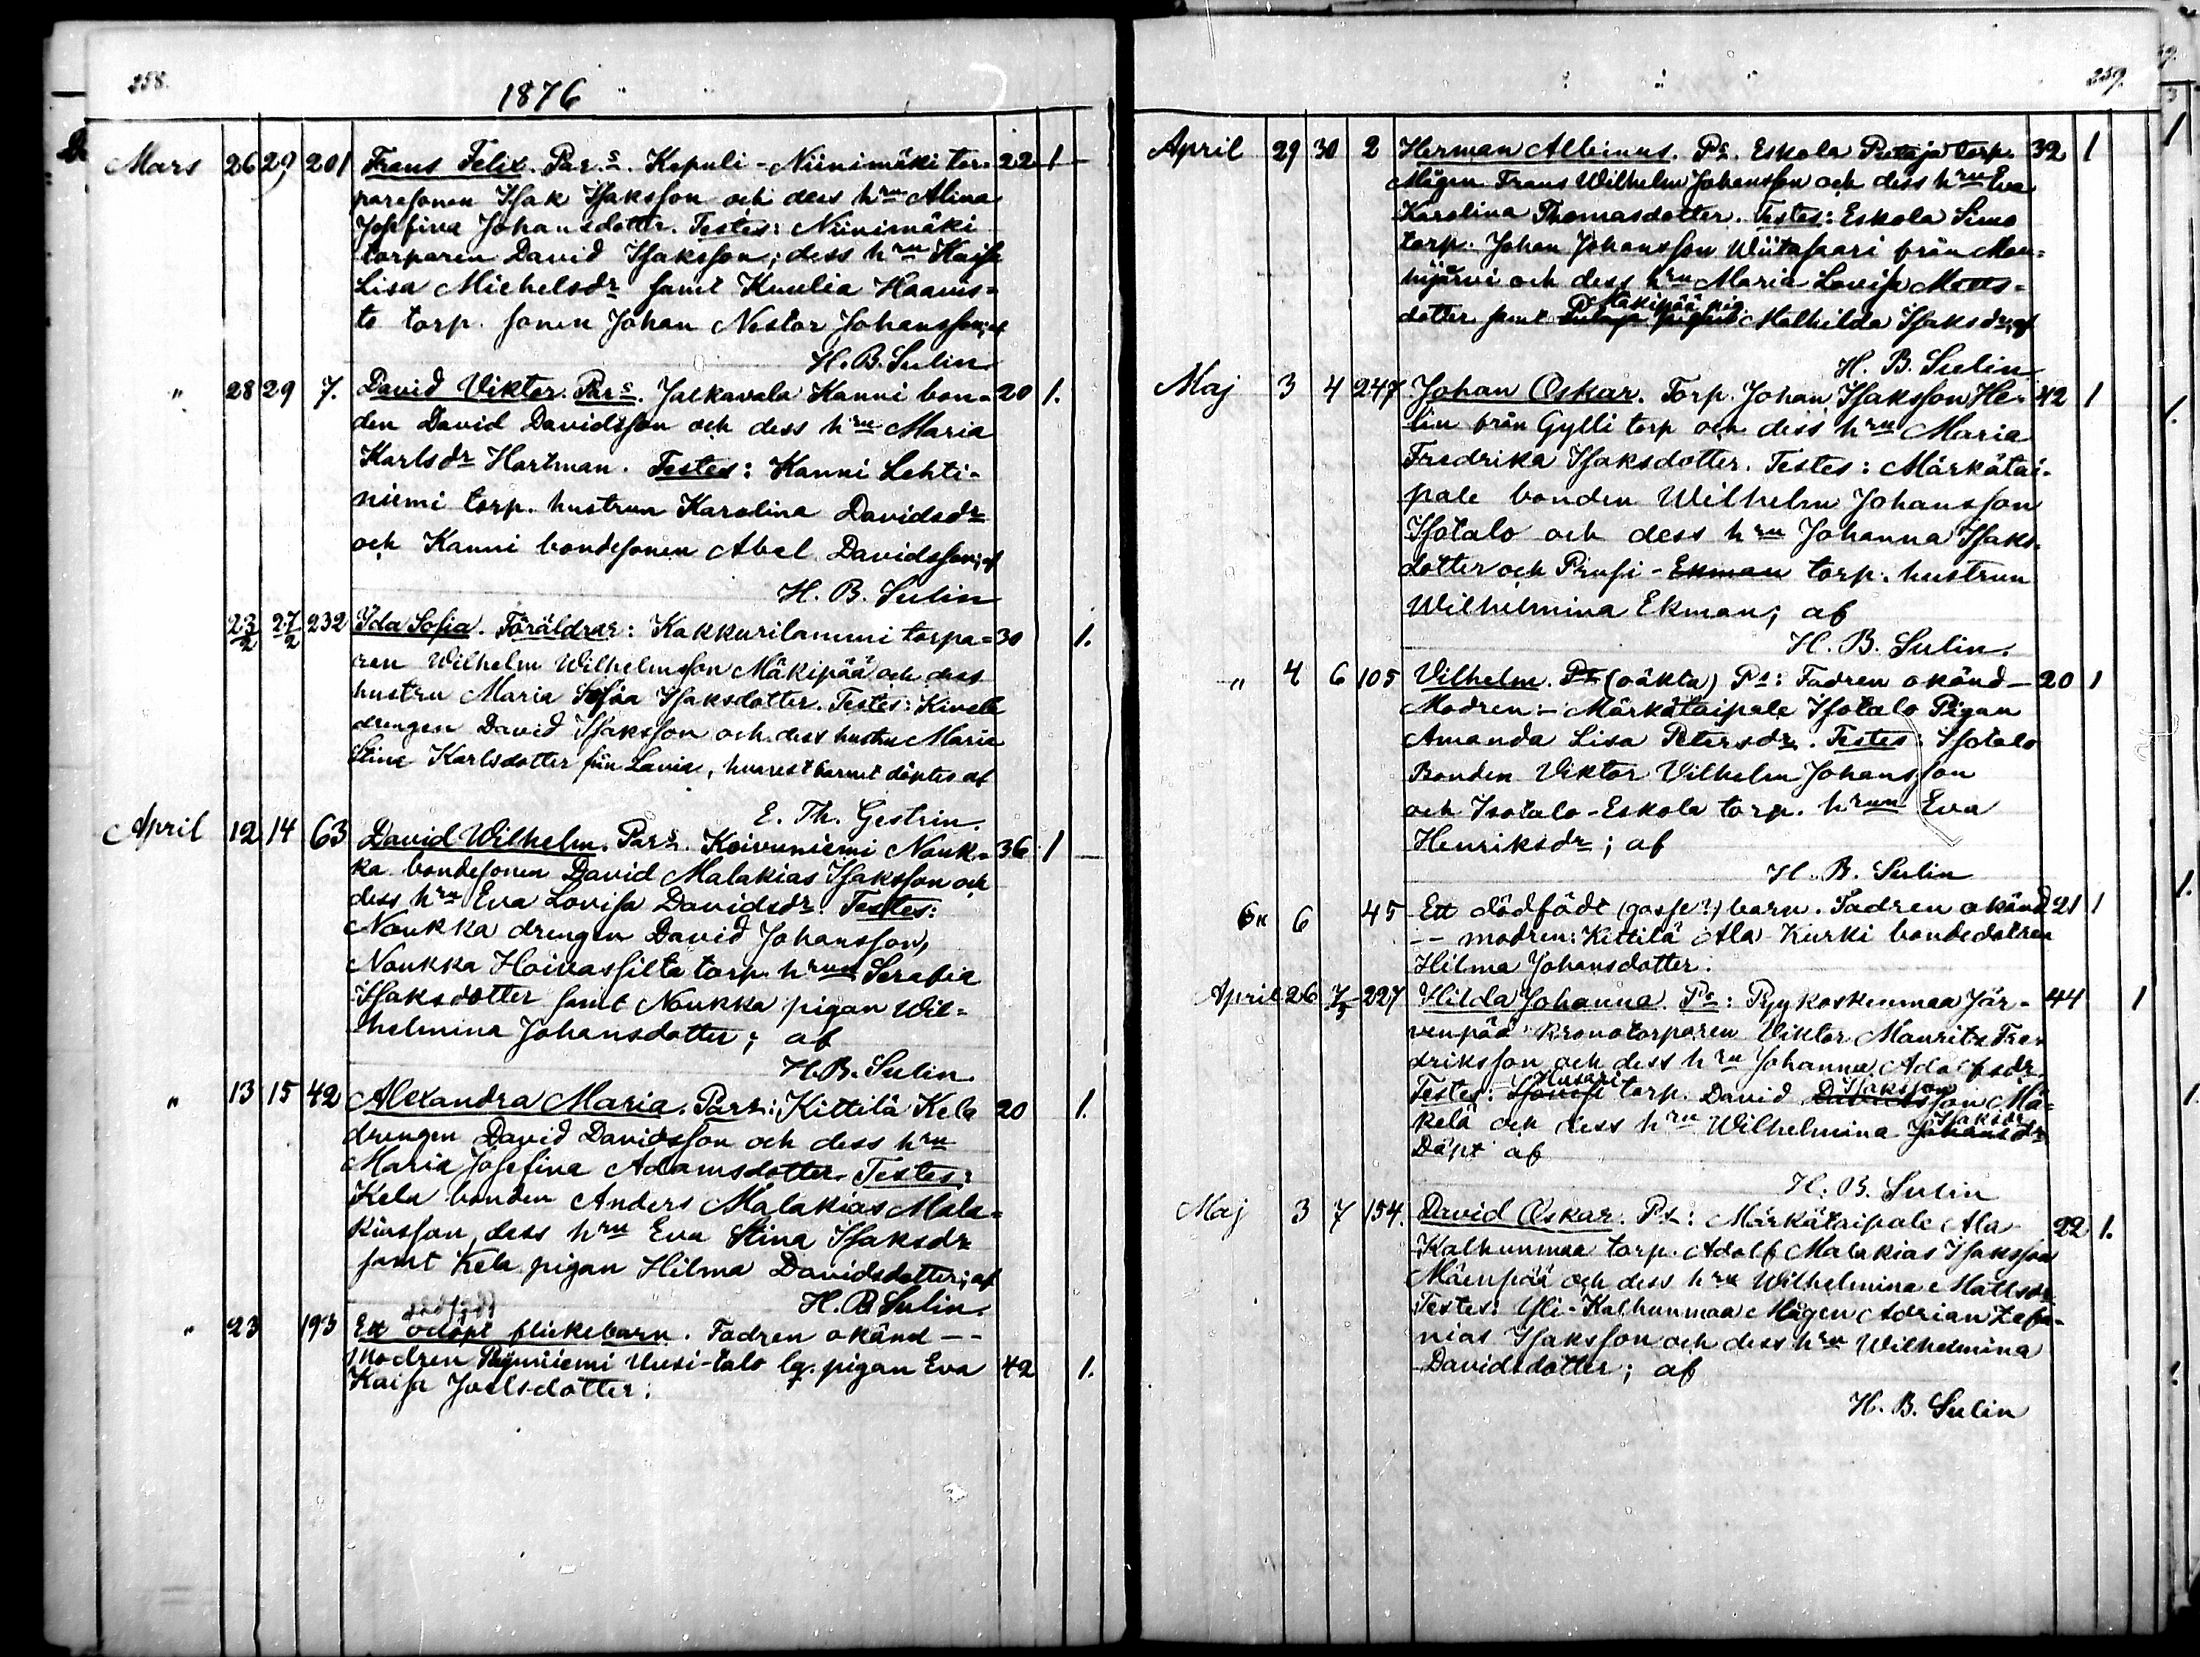 258.
1876
Mars 26 29 201 Frans Felix. Par.s. Kepuli-Niinimäki tor= 22 1 –
paresonen Isak Isaksson och dess hru Alina
Josefina Johansdotter. Testes: Niinimäki
torparen David Isaksson; dess hru Kaisa
Lisa Michelsdr samt Kuulia Haavis=
to torp. sonen Johan Nestor Johansson; af
H. B. Sulin
" 28 29 7. David Viktor. Pars. Jalkavala Kanni bon= 20 1.
den David Davidsson och dess hru Maria
Karlsdr Hartman. Testes: Kanni Lehti-
niemi torp. hustrun Karolina Davidsdr
och Kanni bondesonen Abel Davidsson; af
H. B. Sulin
23/2 27/2 232 Ida Sofia. Föräldrar: Kakkurilammi torpa= 30 1.
ren Wilhelm Wilhelmsson Mäkipää och dess
hustru Maria Sofia Isaksdotter. Testes: Kivelä
drengen David Isaksson och dess hustru Maria
Stina Karlsdotter från Lavia, hvarest barnet döptes af
E. Th. Gestrin.
April 12 14 63 David Wilhelm. Pars. Koivuniemi Nouk= 36 1 –
ka bondesonen David Malakias Isaksson och
dess hru Eva Lovisa Davidsdr. Testes:
Noukka drengen David Johansson,
Noukka Hoivassilta torp. hrun Serafia
Isaksdotter samt Noukka pigan Wil=
helmina Johansdotter; af
H. B. Sulin.
" 13 15 42 Alexandra Maria. Pars: Kittilä Kela 20 1.
drengen David Davidsson och dess hru
Maria Josefina Adamsdotter. Testes:
Kela bonden Anders Malakias Mala=
kiasson, dess hru Eva Stina Isaksdr
samt Kela pigan Hilma Davidsdotter; af
H. B. Sulin.
dödfödt
" 23 193 Ett odöpt flickebarn. Fadren okänd --
Modren Uusi-talo lg. pigan Eva 42 1.
Kaisa Joelsdotter.
259.
April 29 30 2 Herman Albinus. Ps. Eskola Putaja torp. 32 1
Mågen Frans Wilhelm Johansson och dess hru Eva
Karolina Thomasdotter. Testes: Eskola Simo
torp. Johan Johansson Wiitasaari från Mou=
hijärvi och dess hru Maria Lovisa Matts-
Mäkipää pig
dotter samt Mathilda Isaksdr; af
H. B. Sulin
Maj 3 4 247 Johan Oskar. Torp. Johan Isaksson He= 42 1
lin från Gylli torp och dess hru Maria
Fredrika Isaksdotter. Testes: Märkätai-
pale bonden Wilhelm Johansson
Isotalo och dess hru Johanna Isaks-
dotter och Prusi-Ekman torp. hustrun
Wilhelmina Ekman; af
H. B. Sulin.
" 4 6 105 Vilhelm. Ps (oäkta) Ps: Fadren okänd — 20 1
Modren: — Märkätaipale Isotalo Pigan
Amanda Lisa Petersdr. Testes: Isotalo
Bonden Viktor Vilhelm Johansson
och Isotalo-Eskola torp. hrun Eva
Henriksdr; af
H. B. Sulin
6 45 Ett dödfödt (gosse?) barn. Fadren okänd 21 1
-- modren: Kittilä Ala-Kurki bondedotren
Hilma Johansdotter.
April 26 7/5 227 Hilda Johanna. Ps: Pyykoskenmaa Jär- 44 1
venpää Kronotorparen Viktor Mauritz Fre=
driksson och dess hru Johanna Adolfsdr.
Husari Isaksson
Testes: torp. David Davidsson Mä=
Isaksdr
kelä och dess hru Wilhelmina Johansdr
Döpt af
H. B. Sulin
Maj 3 7 154. David Oskar. Ps: Märkätaipale Ala 22 1.
Kalhunmaa torp. Adolf Malakias Isaksson
Mäenpää och dess hru Wilhelmina Mattsdr.
Testes: Yli-Kalhunmaa Mågen Adrian Zefa-
nias Isaksson och dess hru Wilhelmina
Davidsdotter; af
H. B. Sulin